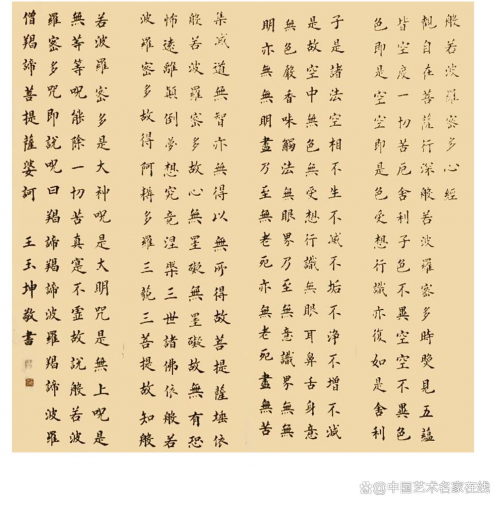 般若波羅密多心經
觀自在菩薩行深般若波羅密多時見五蘊
皆空度一切苦厄舍利子色不異空空不異色
色即是空空即是色受想行識亦復如是舍利
子是諸法空相不生不滅不垢不淨不增不減
是故空中無色無受想行識無眼耳鼻舌身意
無色聲香味觸法無眼界乃至無意識界無無
明亦無無明盡乃至無老死亦無老死盡無苦
集滅道無智亦無得以無所得故菩提薩埵依
般若波羅密多故心無罣礙無罣礙故無有恐
怖遠離顛倒夢想究竟涅槃三世諸佛依般若
波羅密多故得阿耨多羅三藐三菩提故知般
若波羅密多是大神呪是大明咒是無上呪是
無等等呪能除一切苦真寔不虛故說般若波
羅密多咒即說呪曰羯諦羯諦波羅羯諦波羅
僧羯諦菩提薩婆訶 王玉坤敬書
中国艺术名家在线